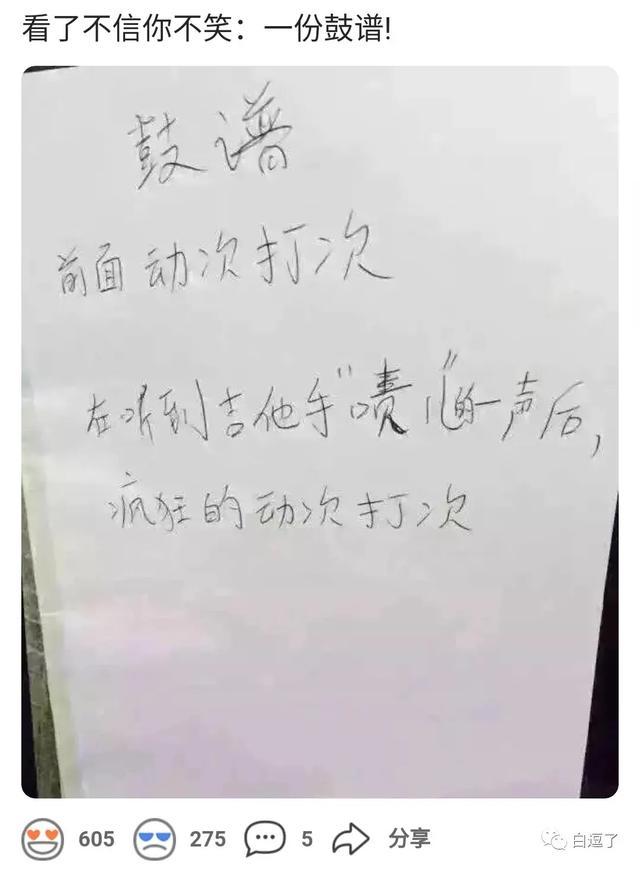 看了不信你不笑：一份鼓谱!
鼓谱
前面动次打次
在听到吉他手"啧儿"的一声后，
疯狂的动次打次
605
275
5
分享
白逗了